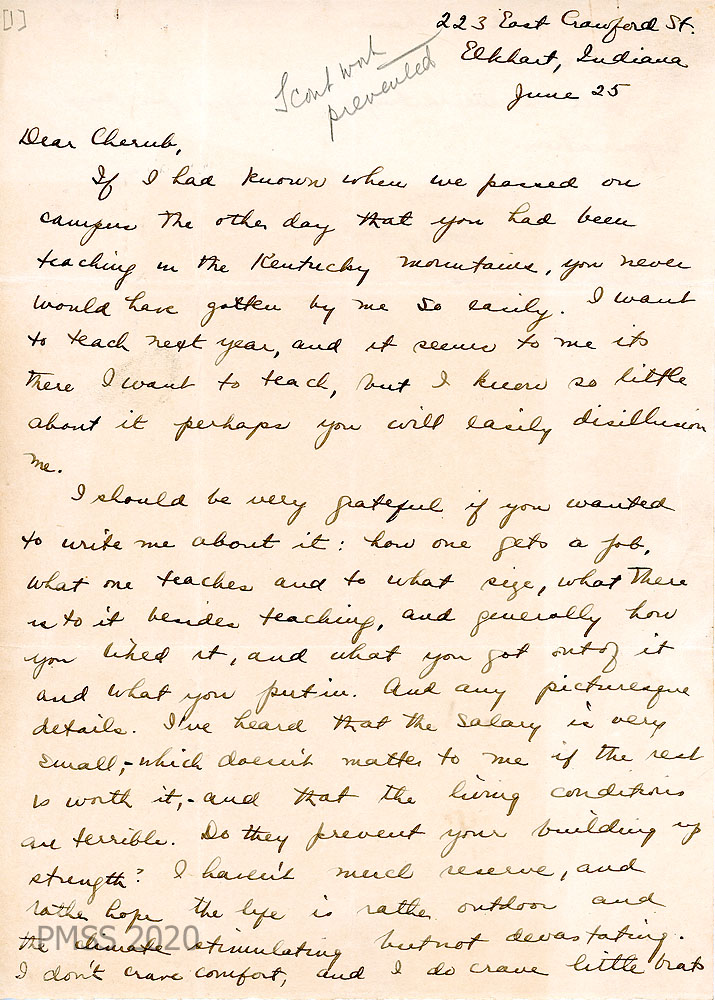 [1]
223 East Crawford St.
Elkhart, Indiana
June 25
Scout work
prevented
Dear Cherub,
If I had known when we passed on
campus the other day that you had been
teaching in the Kentucky mountains, you never
would have gotten by me so easily. I want
to teach next year, and it seems to me its
there I want to teach, but I know so little
about it perhaps you will easily disillusion
me.
I should be very grateful if you wanted
to write me about it: how one gets a job,
what one teaches and to what size, what there
is to it besides teaching, and generally how
you liked it, and what you got out of it
and what you put in. And any picturesque
details. I've heard that the salary is very
small,-which doesn't matter to me if the rest
is worth it,-and that the living conditions
are terrible. Do they prevent your building up
strength? I haven't much reserve, and
rather hope the life is rather outdoor and
the climate stimulating but not devastating.
I don't crave comfort, and I do crave little brats
PMSS 2020